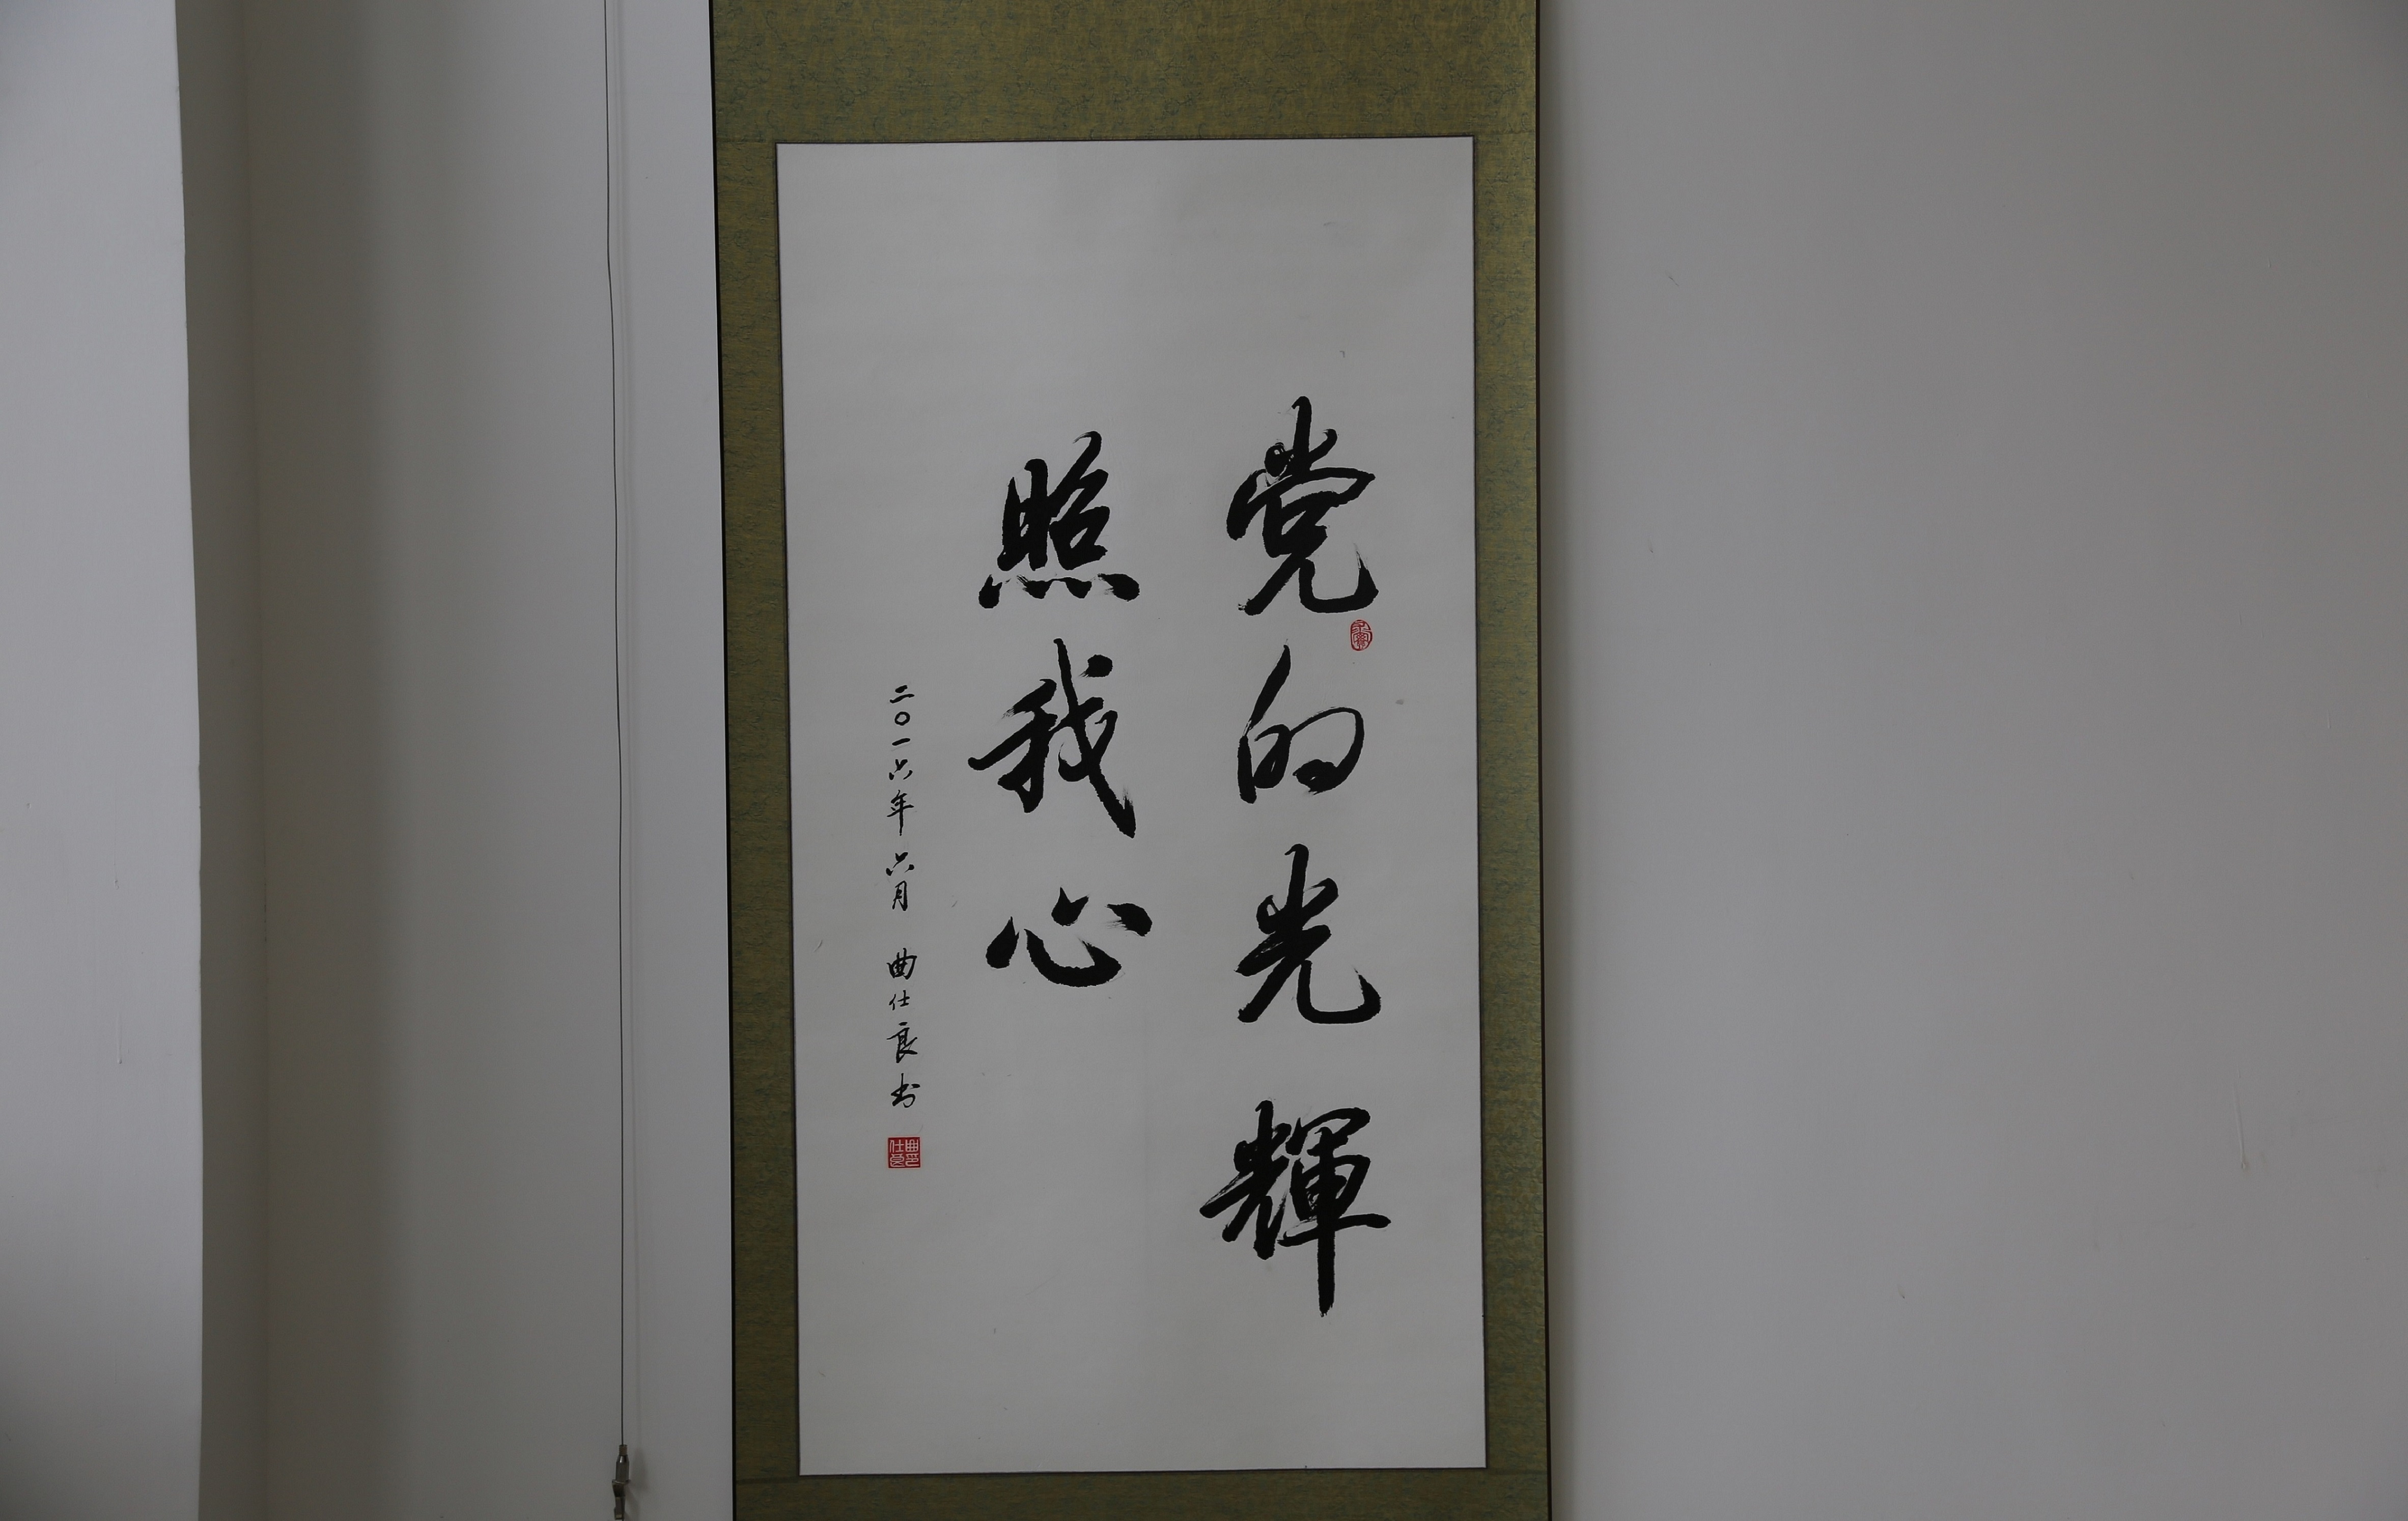 党的光輝
照我心
二〇一六年 六月 曲仕良书
曲仕良印